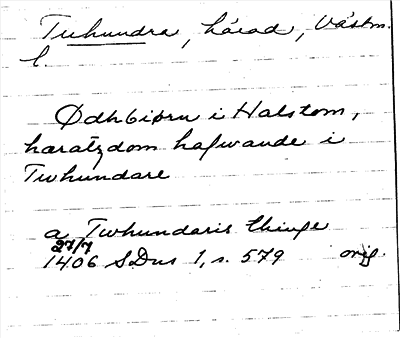 Tuhundra, härad, Västm.
l.
Ødhbiørn i Halstom,
haratzdom hafwande i
Twhundare
a Twhundaris thinge
27/7
1406 SDns 1, s. 579 orig.